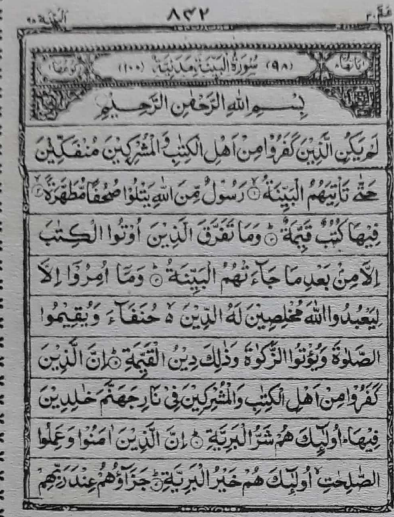 عم ٣٠ ٨٤٢ البينة ٩٨
اٰیاتها ٨ (٩٨) سُوْرَةُ الْبَيِّنَةِ مَدَنِيَّةٌ (١٠٠) رکوعها ١
بِسْمِ اللّٰهِ الرَّحْمٰنِ الرَّحِيْمِ
لَمْ يَكُنِ الَّذِيْنَ كَفَرُوْا مِنْ اَهْلِ الْكِتٰبِ وَالْمُشْرِكِيْنَ مُنْفَكِّيْنَ
حَتّٰى تَاْتِيَهُمُ الْبَيِّنَةُ ۙ١ رَسُوْلٌ مِّنَ اللّٰهِ يَتْلُوْا صُحُفًا مُّطَهَّرَةً ۙ٢
فِيْهَا كُتُبٌ قَيِّمَةٌ ؕ٣ وَمَا تَفَرَّقَ الَّذِيْنَ اُوْتُوا الْكِتٰبَ
اِلَّا مِنْۢ بَعْدِ مَا جَآءَتْهُمُ الْبَيِّنَةُ ؕ٤ وَمَآ اُمِرُوْٓا اِلَّا
لِيَعْبُدُوا اللّٰهَ مُخْلِصِيْنَ لَهُ الدِّيْنَ ۙ۬ حُنَفَآءَ وَيُقِيْمُوا
الصَّلٰوةَ وَيُؤْتُوا الزَّكٰوةَ وَذٰلِكَ دِيْنُ الْقَيِّمَةِ ؕ٥ اِنَّ الَّذِيْنَ
كَفَرُوْا مِنْ اَهْلِ الْكِتٰبِ وَالْمُشْرِكِيْنَ فِيْ نَارِ جَهَنَّمَ خٰلِدِيْنَ
فِيْهَا ؕ اُولٰٓئِكَ هُمْ شَرُّ الْبَرِيَّةِ ؕ٦ اِنَّ الَّذِيْنَ اٰمَنُوْا وَعَمِلُوا
الصّٰلِحٰتِ ۙ اُولٰٓئِكَ هُمْ خَيْرُ الْبَرِيَّةِ ؕ٧ جَزَآؤُهُمْ عِنْدَ رَبِّهِمْ